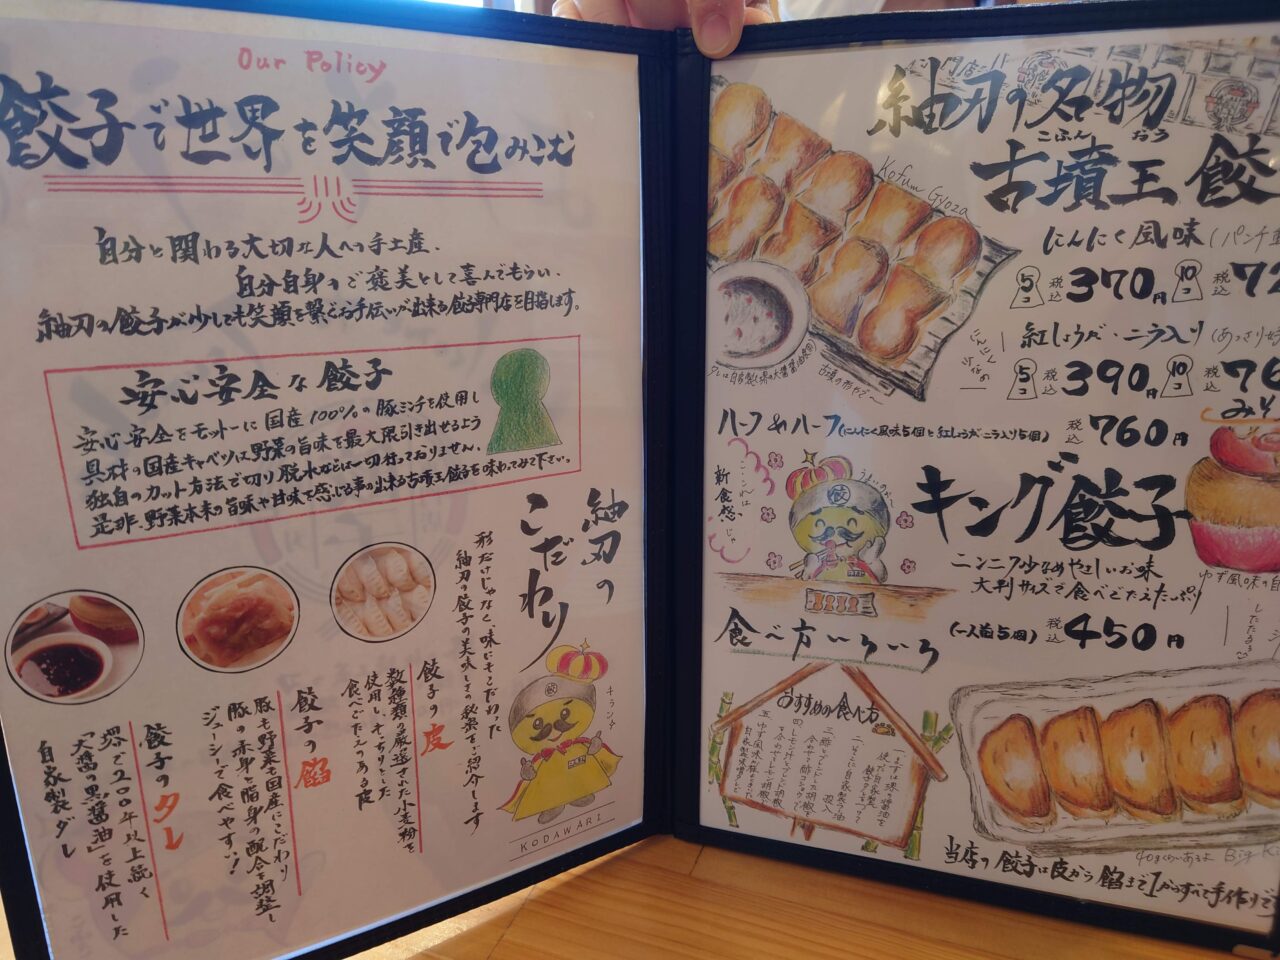 Our Policy
餃子で世界を笑顔で包みこむ
自分と関わる大切な人への手土産、
自分自身のご褒美として喜んでもらい、
紬刃の餃子が少しでも笑顔を繋ぐお手伝いが出来る餃子専門店を目指します。
安心安全な餃子
安心安全をモットーに国産100%の豚ミンチを使用し
具材の国産キャベツは野菜の旨味を最大限引き出せるよう
独自のカット方法で切り脱水などは一切行っておりません。
是非、野菜本来の旨味や甘味を感じる事の出来る古墳王餃子を味わってみて下さい。
紬刃の
こだわり
形だけじゃなく、味にもこだわった
紬刃の餃子の美味しさの秘密をご紹介します
餃子の皮
数種類の厳選された小麦粉を
使用し、もっちりとした
食べごたえのある皮
餃子の餡
豚も野菜も国産にこだわり
豚の赤身と脂身の配合を調整し
ジューシーで食べやすい!
餃子のタレ
堺で200年以上続く
「大醤の黒醤油」を使用した
自家製ダレ
餃
キランッ
KODAWARI
紬刃の名物
こふん おう
古墳王餃
Kofun Gyoza
にんにく風味
5コ 税込 370円 10コ 税込
にんにく
紅しょうが・ニラ入り
5コ 税込 390円 10コ 税込 76
ハーフ&ハーフ(にんにく風味5個と紅しょうがニラ入り5個) 税込 760円
みそ
こ…これは
新食感、じゃ
うまいのぉ〜
餃
キング餃子
ニンニク少なめやさしいお味
大判サイズで食べごたえたっぷり
(一人前5個) 税込 450円
食べ方いろいろ
おすすめの食べ方
Big K
当店の餃子は皮から餡まで1からすべて手作りで